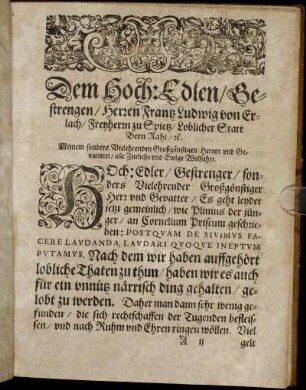 Dem Hoch: Edlen/ Ge-
strengen/ Herren Frantz Ludwig von Er-
lach/ Freyherrn zu Spietz/ Loblicher Statt
Bern Raht/ ꝛc.
Meinem sonders Vielehrenden Großgünstigen Herren vnd Ge-
vatteren/ alle Zeitliche vnd Ewige Wolfahrt.
HOch: Edler/ Gestrenger/ son-
ders Vielehrender Großgönstiger
Herr vnd Gevatter/ Es geht leyder
jetzt gemeinlich/ wie Plinius der jün-
ger/ an Cornelium Priscum geschrie-
ben: POSTQVAM DESIVIMVS FA-
CERE LAVDANDA, LAVDARI QVOQVE INEPTVM
PVTAMVS. Nach dem wir haben auffgehört
lobliche Thaten zu thun/ haben wir es auch
für ein vnnütz närrisch ding gehalten/ ge-
lobt zu werden. Daher man dann sehr wenig ge-
funden/ die sich rechtschaffen der Tugenden befleis-
sen/ vnd nach Ruhm vnd Ehren ringen wöllen. Viel
A ij gelt